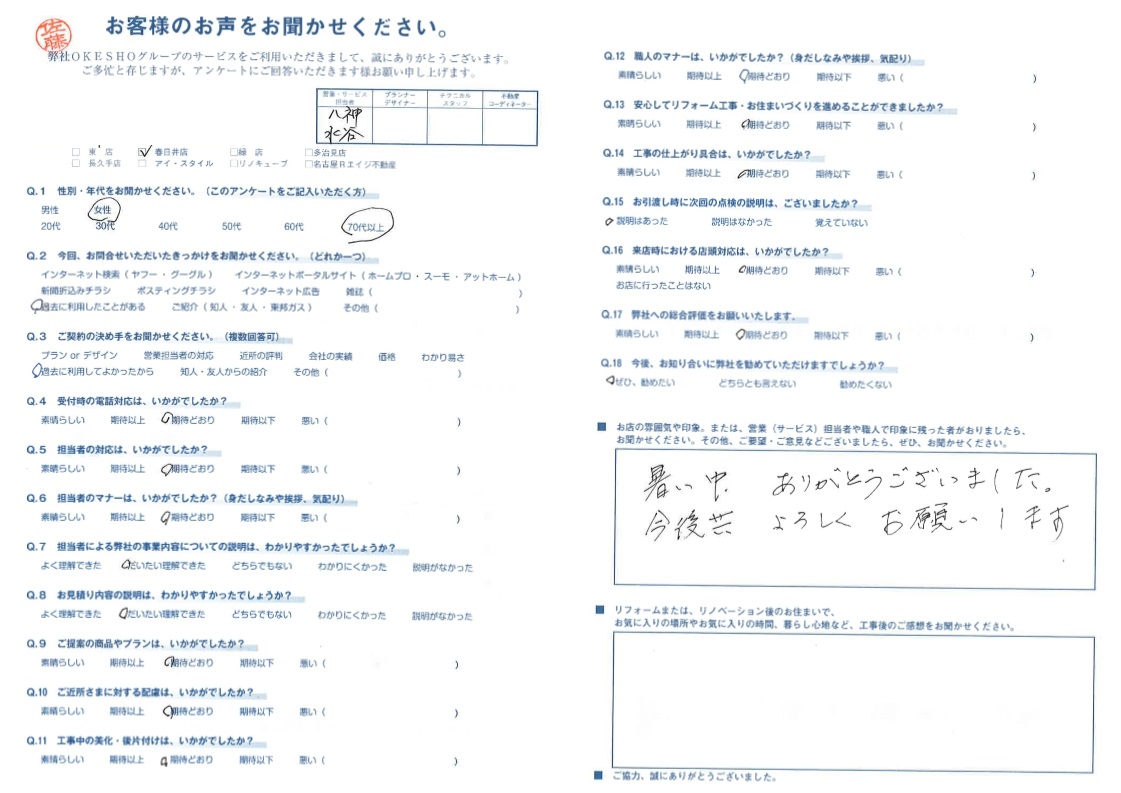 佐藤
お客様のお声をお聞かせください。
弊社OKESHOグループのサービスをご利用いただきまして、誠にありがとうございます。
ご多忙と存じますが、アンケートにご回答いただきます様お願い申し上げます。
営業・サービス担当者 プランナーデザイナー テクニカルスタッフ 不動産コーディネーター
八神
水谷
□ 東 店 ☑ 春日井店 □緑 店 □多治見店
□ 長久手店 □ アイ・スタイル □リノキューブ □名古屋Rエイジ不動産
Q.1 性別・年代をお聞かせください。（このアンケートをご記入いただく方）
男性 女性
20代 30代 40代 50代 60代 70代以上
Q.2 今回、お問合せいただいたきっかけをお聞かせください。（どれか一つ）
インターネット検索（ ヤフー ・ グーグル ） インターネットポータルサイト（ ホームプロ ・ スーモ ・ アットホーム ）
新聞折込みチラシ ポスティングチラシ インターネット広告 雑誌（ ）
過去に利用したことがある ご紹介（ 知人 ・ 友人 ・ 東邦ガス ） その他（ ）
Q.3 ご契約の決め手をお聞かせください。（複数回答可）
プラン or デザイン 営業担当者の対応 近所の評判 会社の実績 価格 わかり易さ
過去に利用してよかったから 知人・友人からの紹介 その他（ ）
Q.4 受付時の電話対応は、いかがでしたか？
素晴らしい 期待以上 期待どおり 期待以下 悪い（ ）
Q.5 担当者の対応は、いかがでしたか？
素晴らしい 期待以上 期待どおり 期待以下 悪い（ ）
Q.6 担当者のマナーは、いかがでしたか？（身だしなみや挨拶、気配り）
素晴らしい 期待以上 期待どおり 期待以下 悪い（ ）
Q.7 担当者による弊社の事業内容についての説明は、わかりやすかったでしょうか？
よく理解できた だいたい理解できた どちらでもない わかりにくかった 説明がなかった
Q.8 お見積り内容の説明は、わかりやすかったでしょうか？
よく理解できた だいたい理解できた どちらでもない わかりにくかった 説明がなかった
Q.9 ご提案の商品やプランは、いかがでしたか？
素晴らしい 期待以上 期待どおり 期待以下 悪い（ ）
Q.10 ご近所さまに対する配慮は、いかがでしたか？
素晴らしい 期待以上 期待どおり 期待以下 悪い（ ）
Q.11 工事中の美化・後片付けは、いかがでしたか？
素晴らしい 期待以上 期待どおり 期待以下 悪い（ ）
Q.12 職人のマナーは、いかがでしたか？（身だしなみや挨拶、気配り）
素晴らしい 期待以上 期待どおり 期待以下 悪い（ ）
Q.13 安心してリフォーム工事・お住まいづくりを進めることができましたか？
素晴らしい 期待以上 期待どおり 期待以下 悪い（ ）
Q.14 工事の仕上がり具合は、いかがでしたか？
素晴らしい 期待以上 期待どおり 期待以下 悪い（ ）
Q.15 お引渡し時に次回の点検の説明は、ございましたか？
説明はあった 説明はなかった 覚えていない
Q.16 来店時における店頭対応は、いかがでしたか？
素晴らしい 期待以上 期待どおり 期待以下 悪い（ ）
お店に行ったことはない
Q.17 弊社への総合評価をお願いいたします。
素晴らしい 期待以上 期待どおり 期待以下 悪い（ ）
Q.18 今後、お知り合いに弊社を勧めていただけますでしょうか？
ぜひ、勧めたい どちらとも言えない 勧めたくない
■ お店の雰囲気や印象。または、営業（サービス）担当者や職人で印象に残った者がおりましたら、
お聞かせください。その他、ご要望・ご意見などございましたら、ぜひ、お聞かせください。
暑い中 ありがとうございました。
今後共 よろしく お願いします
■ リフォームまたは、リノベーション後のお住まいで、
お気に入りの場所やお気に入りの時間、暮らし心地など、工事後のご感想をお聞かせください。
■ ご協力、誠にありがとうございました。